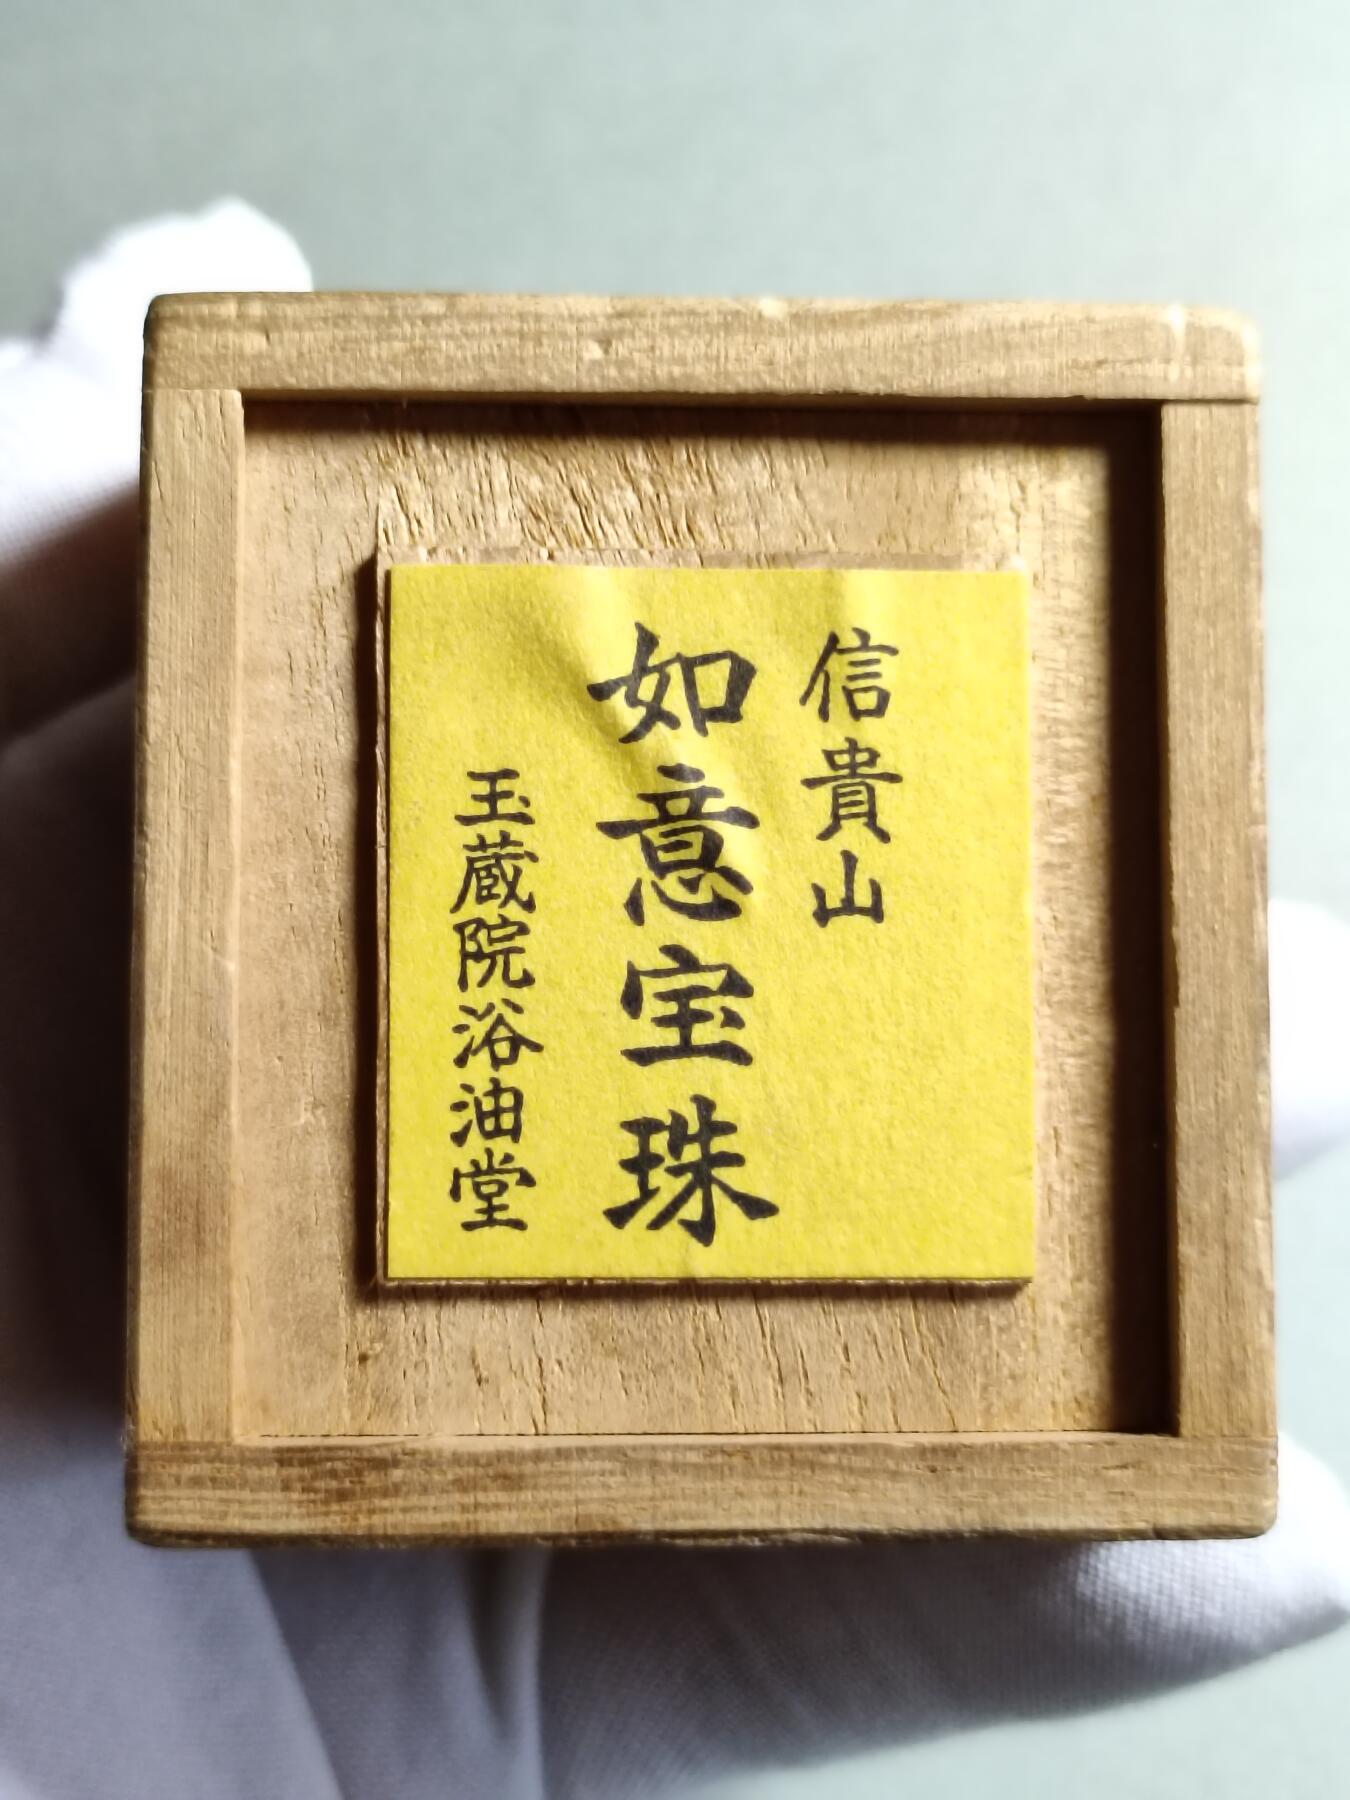 信貴山
如意宝珠
玉蔵院浴油堂